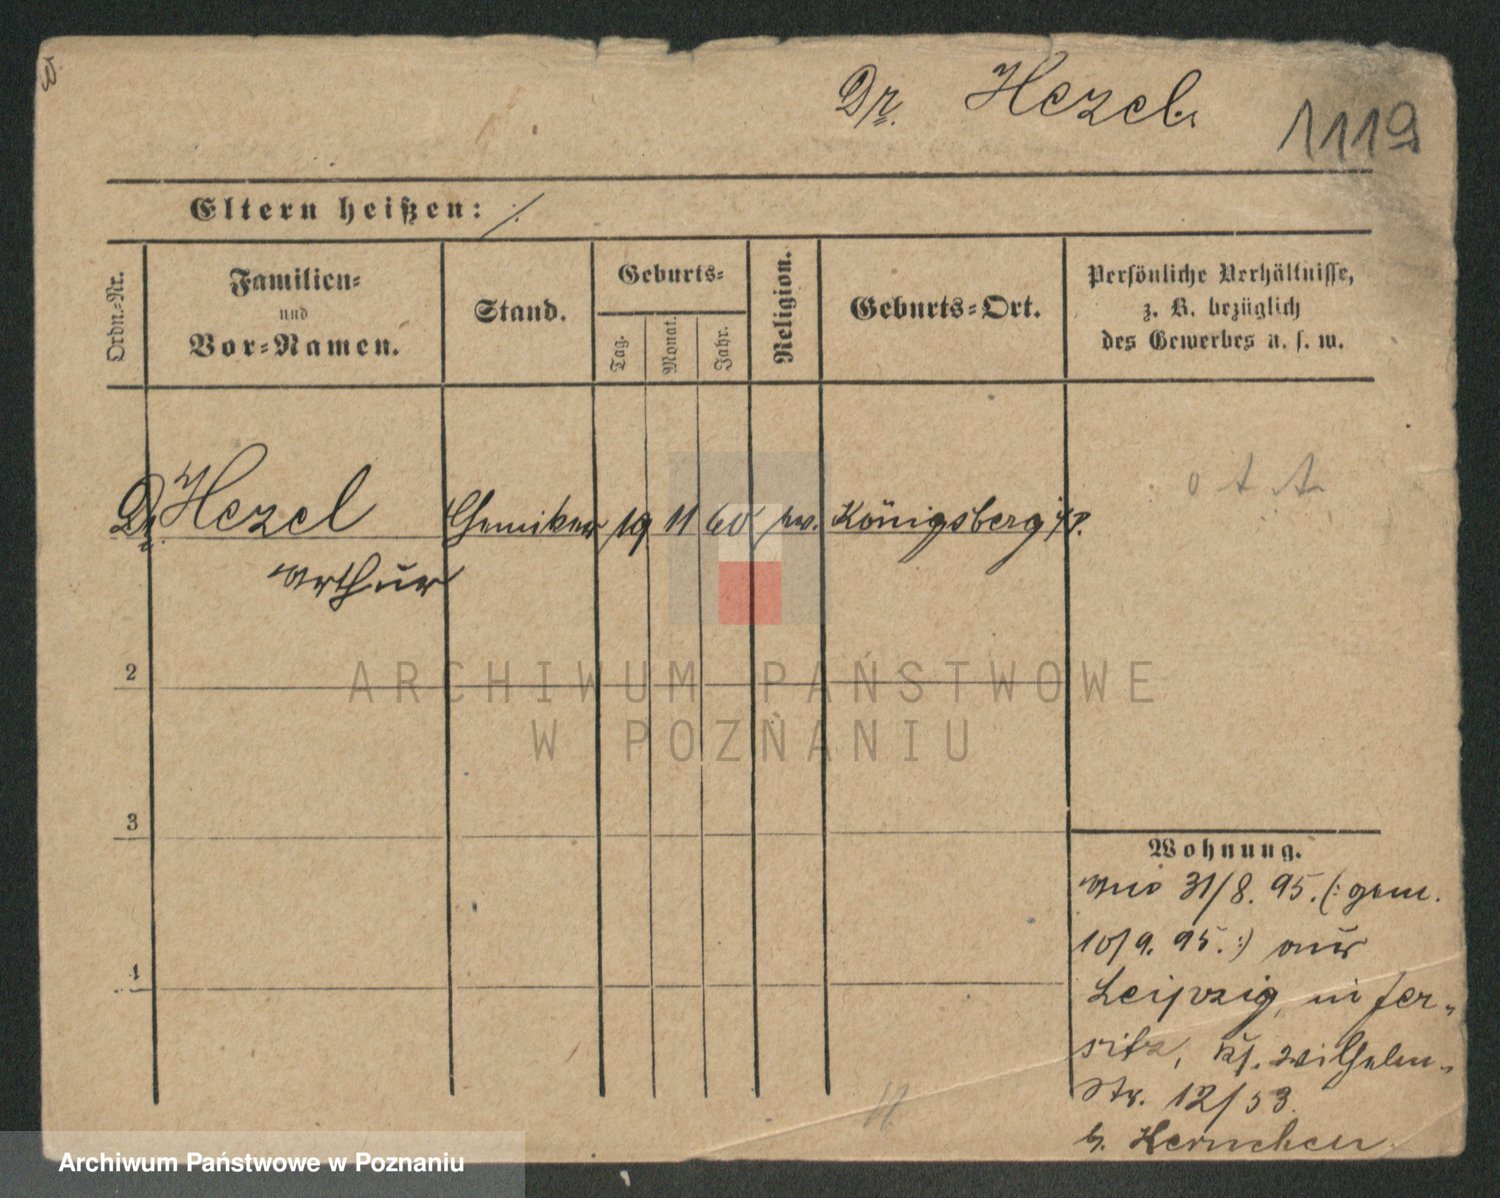 Dr. Hezel.
1119
Eltern heißen: ./.
Ordn.-Nr.
Familien-
und
Vor-Namen.
Stand.
Geburts-
Tag.
Monat.
Jahr.
Religion.
Geburts-Ort.
Persönliche Verhältnisse,
z. B. bezüglich
des Gewerbes u. s. w.
Dr. Hezel Chemiker 19 11 60 ev. Königsberg i/P.
Arthur
2
3
4
Wohnung.
31/8. 95. (: gem.
10/9. 95. :) aus
Leipzig, in Jer-
sitz, Ks. Wilhelm-
Str. 12/53.
b. Kernchen
ARCHIWUM PAŃSTWOWE
W POZNANIU
Archiwum Państwowe w Poznaniu